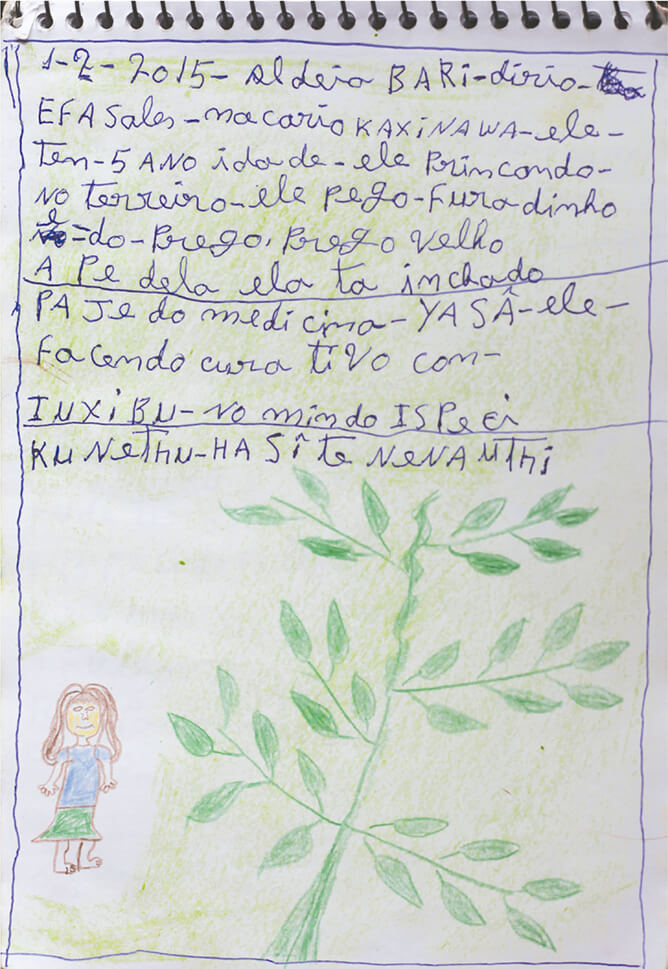 1-2-2015- aldeia BARi-dirio-
EFASales-macario KAXiNAWA-ele-
Ten-5 ANO idade-ele Princondo-
NO terreiro-ele pego-Furadinho
=do-Prego. Prego velho
A Pe dela ela ta inchado
PAJe do medicina-YASÂ-ele-
Facendo cura tiVo con-
IUXiBU-no mindo ISPeci
KUNeTHU-HASÎTe NeNAUTHi